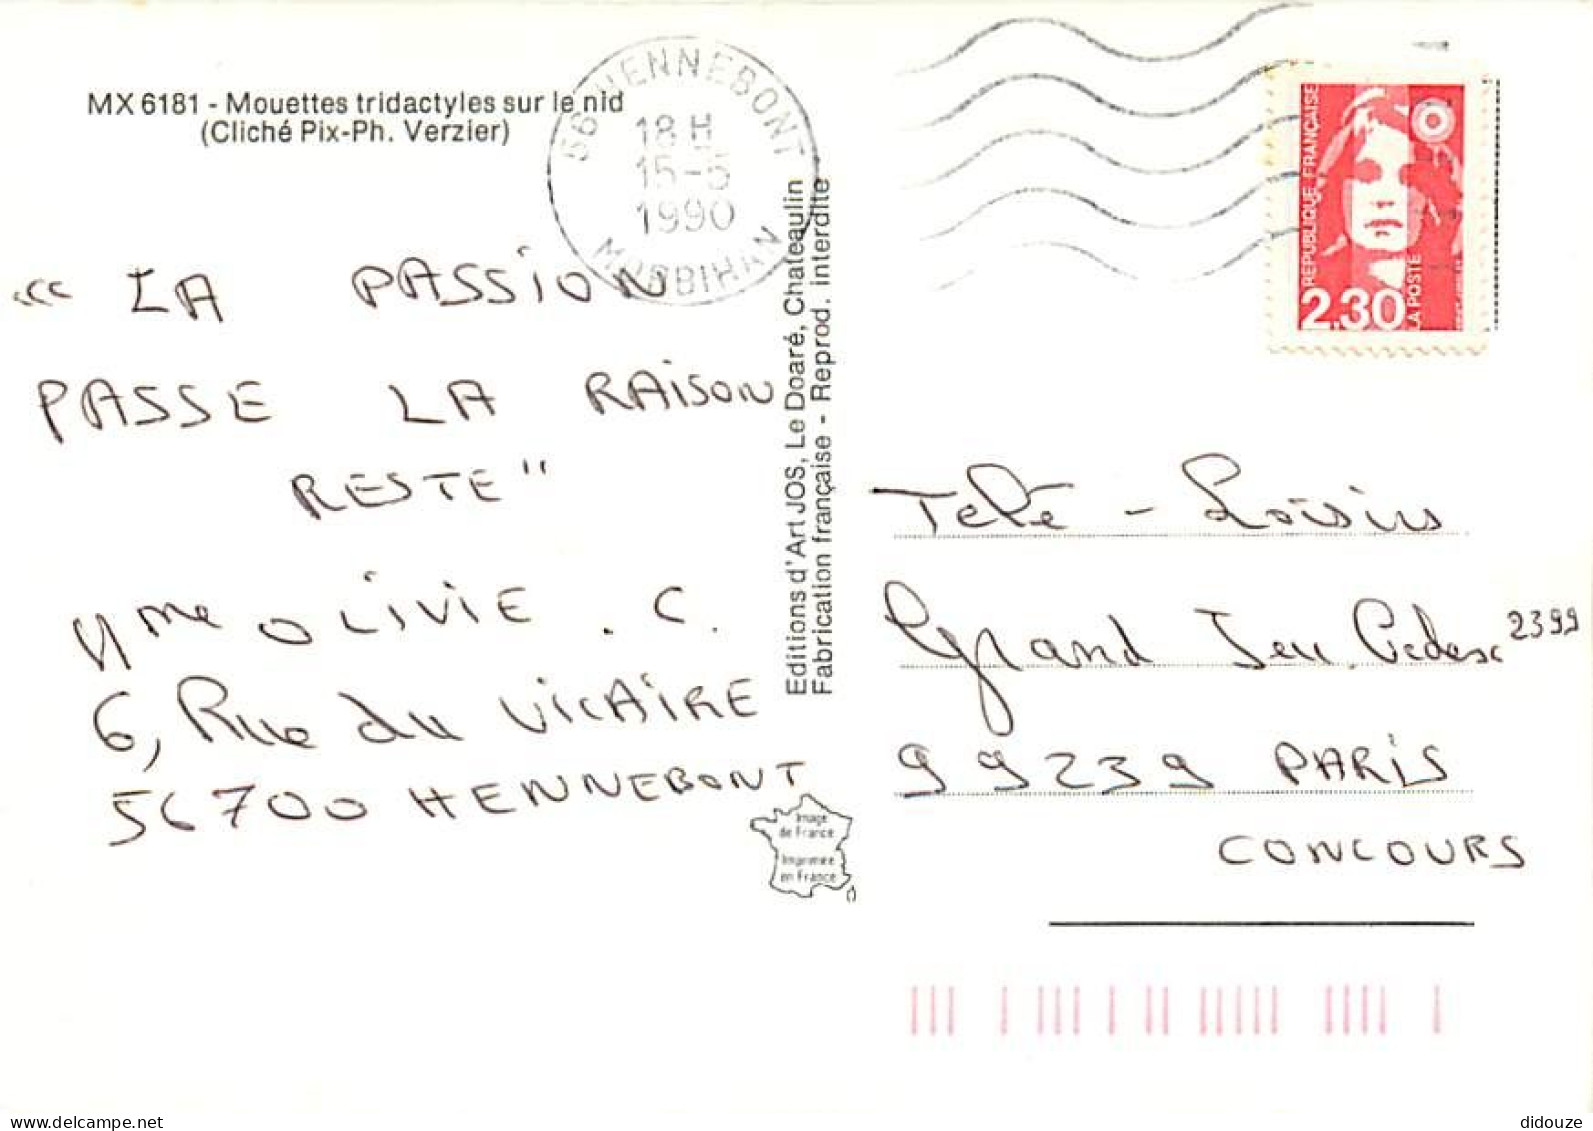 MX 6181 - Mouettes tridactyles sur le nid
(Cliché Pix-Ph. Verzier)
56 HENNEBONT
18 H
15-5
1990
MORBIHAN
RÉPUBLIQUE FRANÇAISE
2,30
LA POSTE
"LA PASSION
PASSE LA RAISON
RESTE"
Mme OLIVIE . C.
6, Rue du VICAIRE
56700 HENNEBONT
Editions d'Art JOS, Le Doaré, Chateaulin
Fabrication française - Reprod. interdite
Image
de France
Imprimée
en France
Télé - Loisirs
Grand Jeu. Cedex 2399
99239 PARIS
CONCOURS
www.delcampe.net
didouze